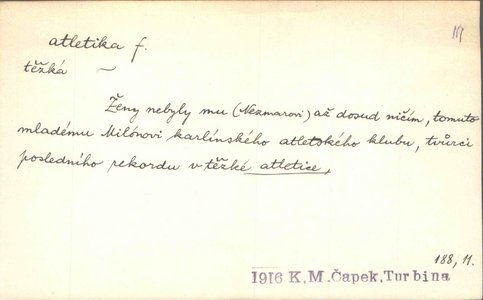 atletika f.
těžká ~
Ženy nebyly mu (Nezmarovi) až dosud ničím, tomuto
mladému Milónovi karlínského atletského klubu, tvůrci
posledního rekordu v těžké atletice,
188, 11.
1916 K.M.Čapek,Turbina